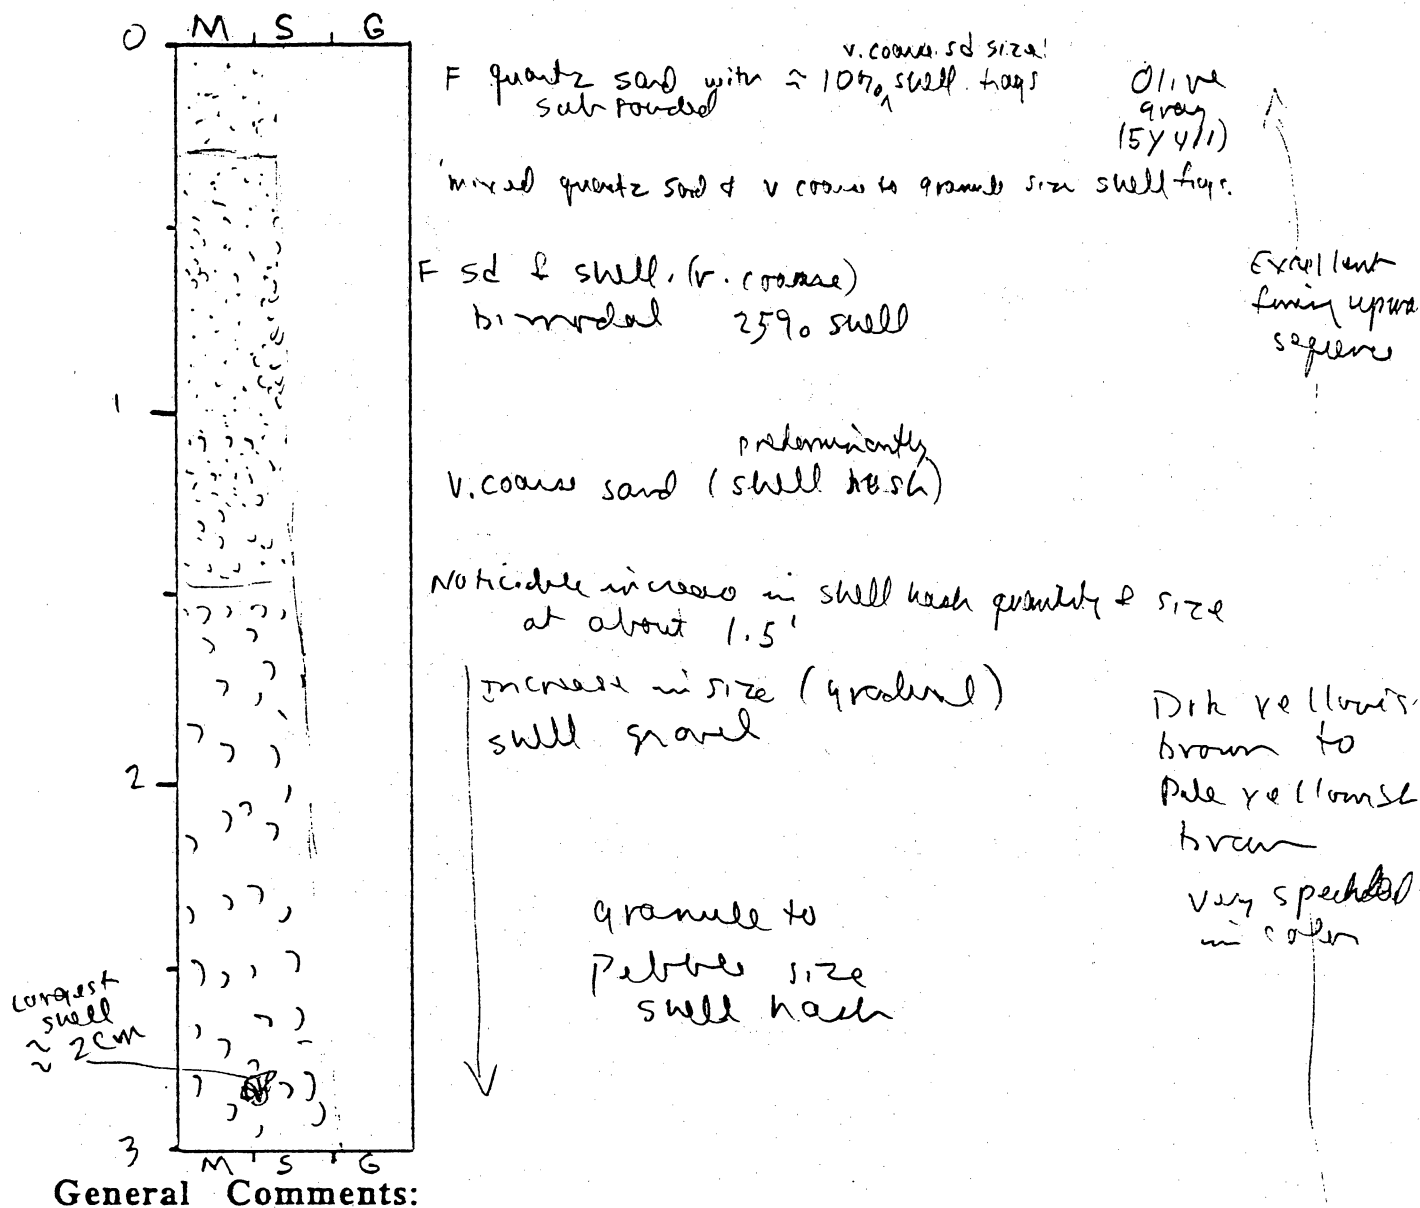 M S G
0
v. coarse sd size
F quartz sand with ≈ 10% ^ shell frags
sub rounded
Olive
gray
(5Y 4/1)
mixed quartz sand & v coarse to granule size shell frags.
F sd & shell. (v. coarse)
bimodal 25% shell
Excellent
fining upwa
sequence
1
predominantly
v. coarse sand (shell hash)
Noticable increase in shell hash quantity & size
at about 1.5'
Increase in size (gradual)
shell gravel
Drk yellowis
brown to
Pale yellowish
brown
very speckled
in color
2
granule to
Pebble size
shell hash
Largest
shell
≈ 2cm
3
M S G
General Comments: